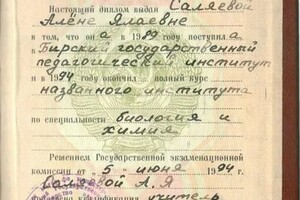 Настоящий диплом выдан Саляевой
Алёне Ялаевне
в том, что она в 1989 году поступила
в Бирский государственный
педагогический институт
и в 1994 году окончила полный курс
названного института
по специальности биология и
химия
Решением Государственной экзаменационной
комиссии от 5 июня 1994г.
Саляевой А.Я
присвоена квалификация учитель